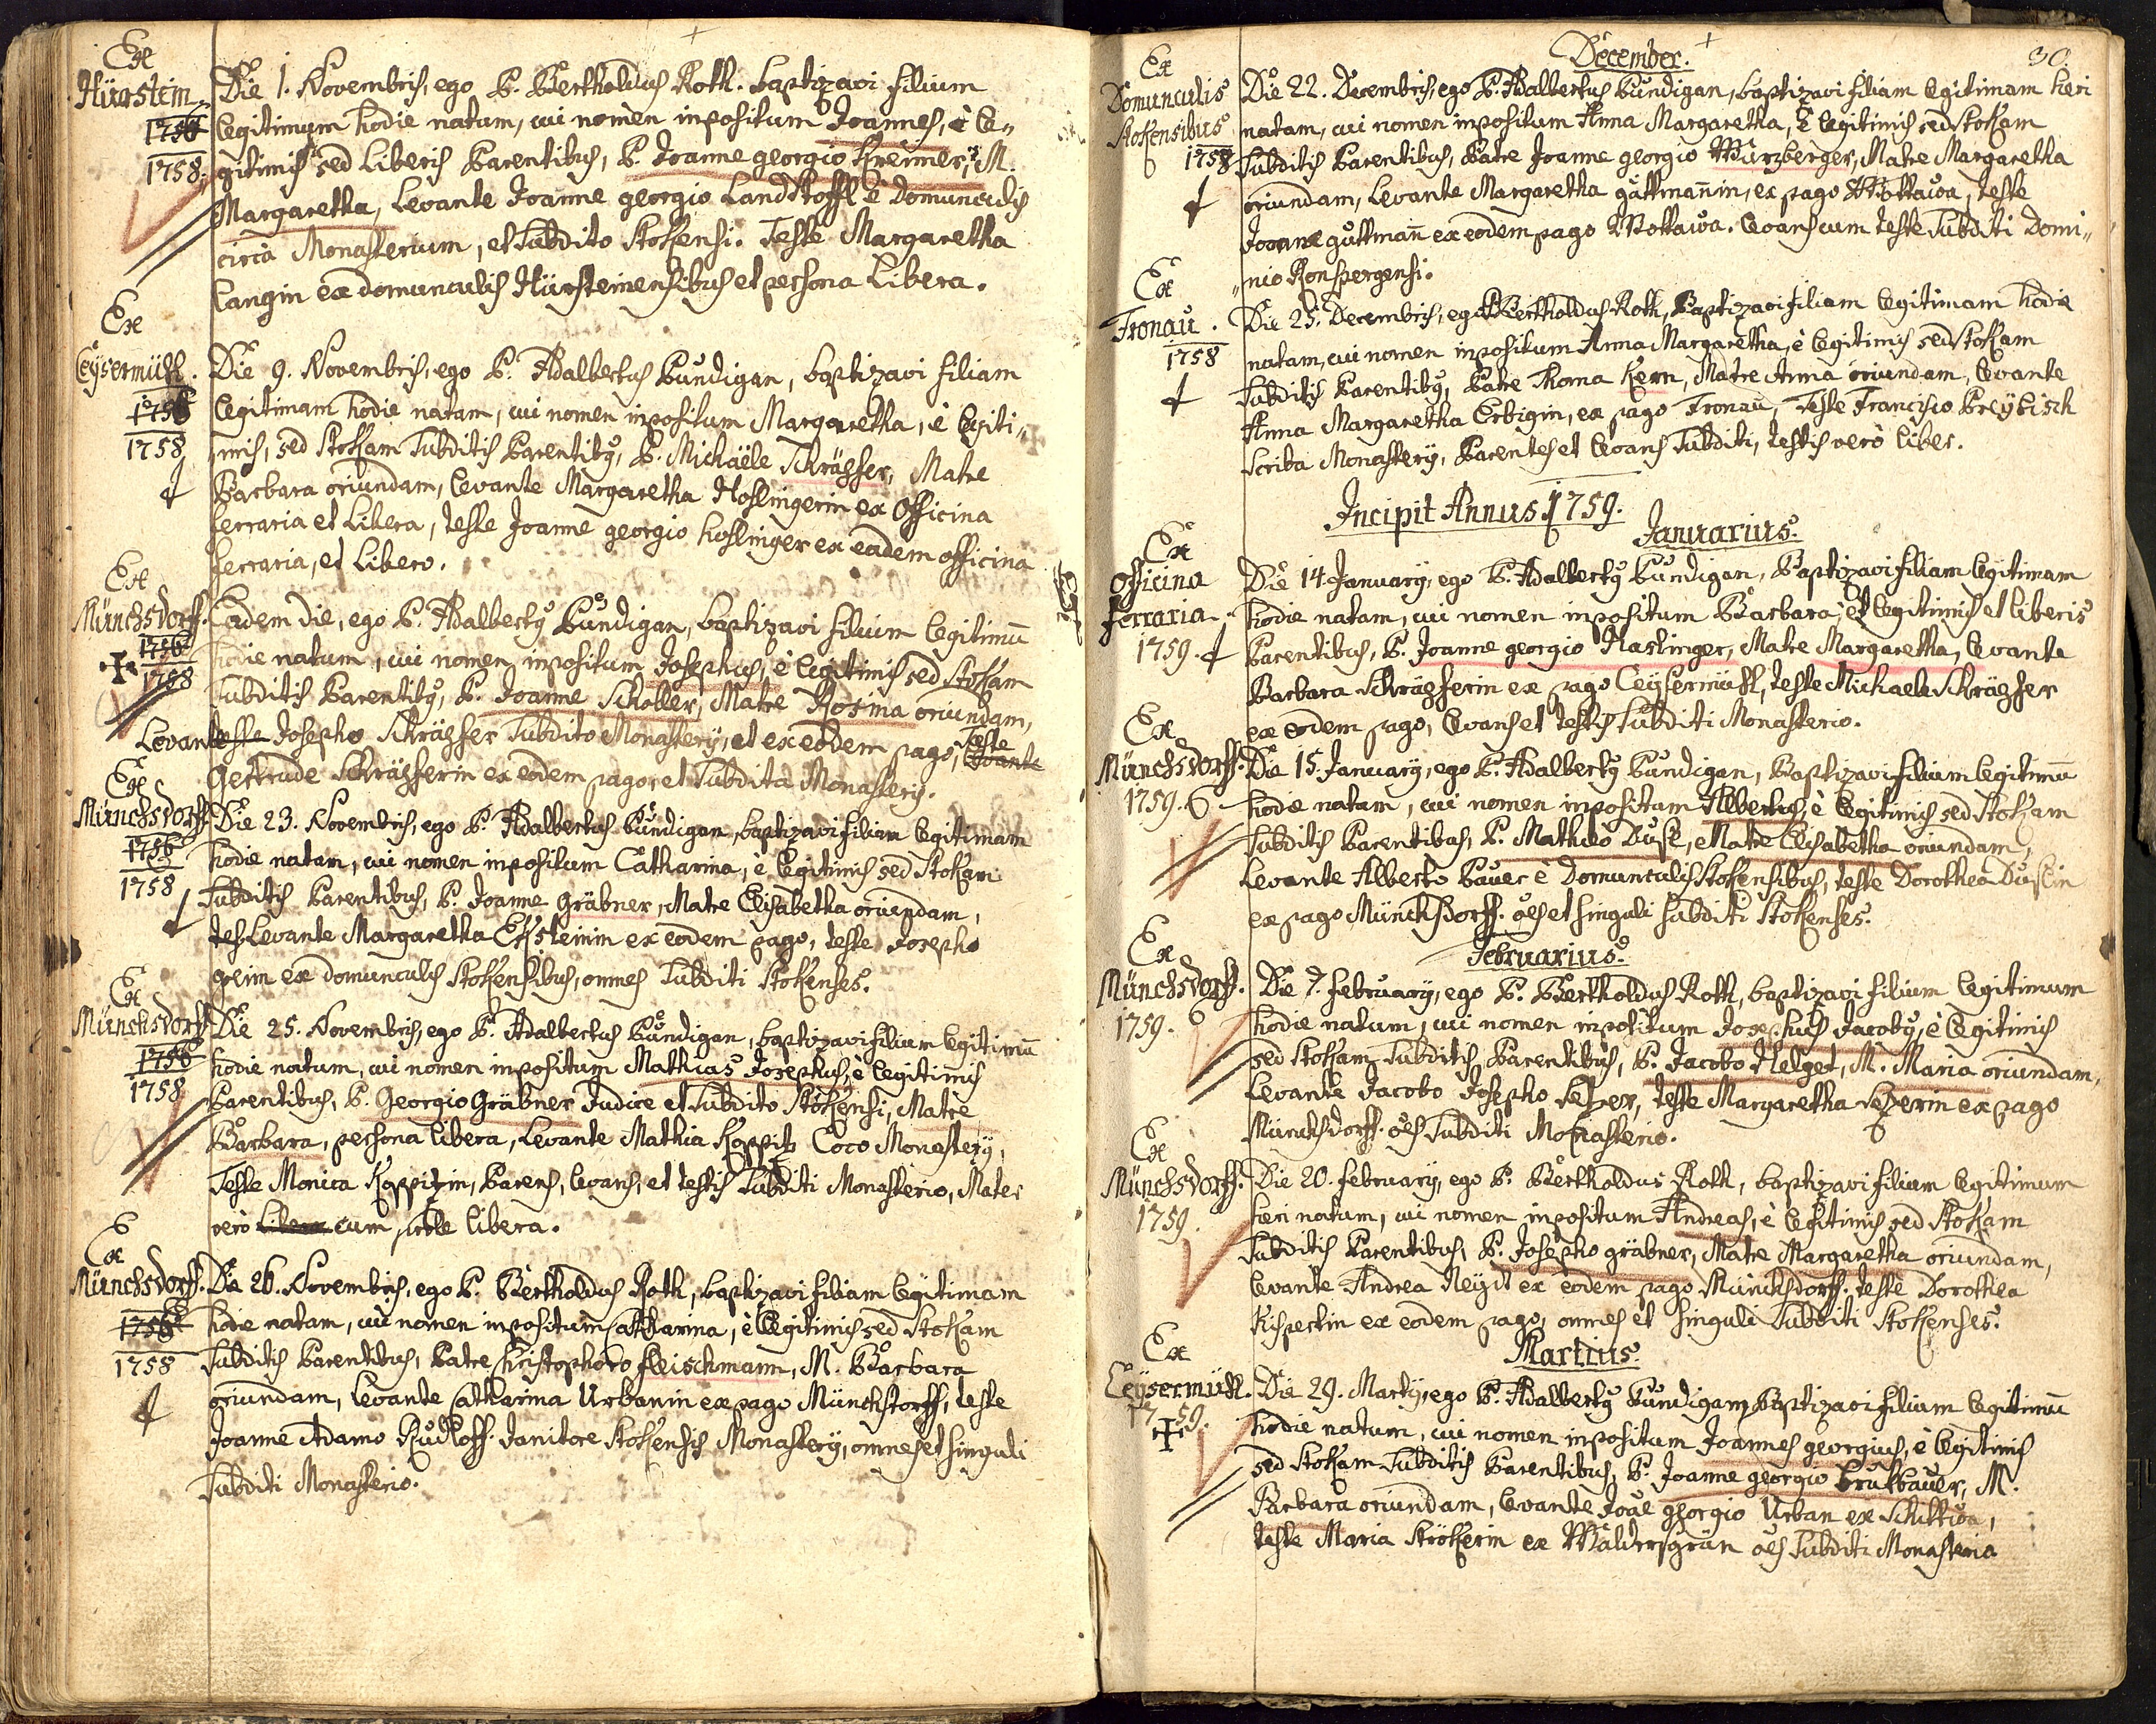 Ex
Hürstein
1756
1758.
Die 1. Novembris, ego P. Bertholdus Roth. baptizavi filium
legitimum hodie natum, cui nomen inpositum Joannes, è le„
gitimis sed Liberis Parentibus, P. Joanne georgio Kreimer, M.
Margaretha, Levante Joanne georgio Landstoffl è domunculis
circà Monasterium, et Subdito Stokensi. Teste Margaretha
Langin ex domunculis Hürsteinensibus et persona Libera.
Ex
Leÿsermühl.
1756
1758
Die 9. Novembris, ego P. Adalbertus Bundigan, baptizavi filiam
legitimam hodie natam, cui nomen inpositum Margaretha, è legiti„
mis, sed Stokam Subditis Parentibus, P. Michaële Schräghser, Matre
Barbara oriundam, levante Margaretha Hoslingerin ex Officina
ferraria et Libera, teste Joanne georgio hoslinger ex eadem officina
ferraria, et Libero.
Ex
Münchsdorff.
1756
1758
Eadem die, ego P. Adalbertus Bundigan, baptizavi filium legitimū
hodie natum, cui nomen inpositum Josephus, è legitimis sed Stokam
Subditis Parentibus, P. Joanne Schober, Matre Rosina oriundam,
Levante teste Josepho Schräghser Subdito Monasterÿ, et ex eodem pago, teste levante
Gertrude Schräghserin ex eodem pago, et Subdita Monasterÿ.
Ex
Münchsdorff.
1756
1758
Die 23. Novembris, ego P. Adalbertus Bundigan, baptizavi filiam legitimam
hodie natam, cui nomen inpositum Catharina, è legitimis sed Stokam
Subditis Parentibus, P. Joanne Gräbner, Matre Elisabetha oriundam,
tes Levante Margaretha Ecksteinin ex eodem pago, teste Josepho
ex domunculis Stokensibus, omnes Subditi Stokenses.
Ex
Münchsdorff
1756
1758
Die 25. Novembris, ego P. Adalbertus Bundigan, baptizavi filium legitimū
hodie natum, cui nomen inpositum Mathias Josephus, è legitimis
Parentibus, P. Georgio Gräbner Judice et Subdito Stokensi, Matre
Barbara, persona libera, Levante Mathia Koppitz Coco Monasterÿ,
Teste Monica Koppitzin, Parens, levans, et testis Subditi Monasterio, Mater
verò libera cum prole libera.
Ex
Münchsdorff.
1756
1758
Die 26. Novembris, ego P. Bertholdus Roth, baptizavi filiam legitimam
hodie natam, cui nomen inpositum Catharina, è legitimis sed Stokam
Subditis Parentibus, Patre Christophoro fleischmann, M. Barbara
oriundam, levante Catharina Urbanin ex pago Münchstorff, teste
Joanne Adamo Rudloff Janitore Stokensis Monasterÿ, omnes et singuli
Subditi Monasterio.
30.
December.
Ex
Domunculis
Stokensibus
1758
Die 22. Decembris, ego P. Adalbertus Bundigan, baptizavi filiam legitimam heri
natam, cui nomen inpositum Anna Margaretha, è legitimis sed Stokam
Subditis Parentibus, Patre Joanne georgio Würzberger, Matre Margaretha
oriundam, Levante Margaretha guttmañin, ex pago Wottawa, teste
Joanne guttmañ ex eodem pago Wottawa. levans cum teste Subditi Domi„
„nio Ronspergensi.
Ex
Tronau.
1758
Die 25. Decembris, ego P. Bertholdus Roth, Baptizavi filiam legitimam hodie
natam, cui nomen inpositum Anna Margaretha, è legitimis sed Stokam
Subditis Parentibus, Patre Thoma Kern, Matre Anna oriundam, levante
Anna Margaretha Erbigin, ex pago Tronau, Teste Francisco Preÿbisch
Scriba Monasterÿ, Parentes et levans Subditi, testis verò liber.
Incipit Annus 1759.
Januarius.
Ex
Officina
ferraria.
1759.
Die 14. Januarÿ, ego P. Adalbertus Bundigan, Baptizavi filiam legitimam
hodie natam, cui nomen inpositum Barbara, et legitimis et liberis
Parentibus, P. Joanne georgio Haslinger, Matre Margaretha, levante
Barbara Schräghserin ex pago Leÿsermühl, teste Michaele Schräghser
ex eodem pago, levans et testis Subditi Monasterio.
Ex
Münchsdorff.
1759.
Die 15. Januarÿ, ego P. Adalbertus Bundigan, Baptizavi filium legitimū
hodie natum, cui nomen inpositum Albertus, è legitimis sed Stokam
Subditis Parentibus, P. Matheo Duschl, Matre Elisabetha oriundam,
Levante Alberto Bauer è Domunculis Stokensibus, teste Dorothea Duslin
ex pago Münchsdorff. oes et singuli subditi Stokenses.
Februarius.
Ex
Münchsdorff.
1759.
Die 7. februarÿ, ego P. Bertholdus Roth, baptizavi filium legitimum
hodie natum, cui nomen inpositum Josephus Jacobus, è legitimis
sed Stokam Subditis Parentibus, P. Jacobo Helget, M. Maria oriundam,
Levante Jacobo Josepho Sezer, teste Margaretha Sezerin ex pago
Münchsdorff. oes Subditi Monasterio.
Ex
Münchsdorff.
1759.
Die 20. februarÿ, ego P. Bertholdus Roth, baptizavi filium legitimum
heri natum, cui nomen inpositum Andreas, è legitimis sed Stokam
Subditis Parentibus, P. Josepho gräbner, Matre Margaretha oriundam,
levante Andrea Neÿdl ex eodem pago Münchsdorff. teste Dorothea
Rispectin ex eodem pago, omnes et singuli Subditi Stokenses.
Martius.
Ex
Leÿsermühl.
1759.
Die 29. Martÿ, ego P. Adalbertus Bundigan, Baptizavi filium legitimū
hodie natum, cui nomen inpositum Joannes georgius, è legitimis
sed Stokam Subditis Parentibus, P. Joanne georgio Brukbauer, M.
Barbara oriundam, levante Joañe georgio Urban ex Schittwa,
teste Maria Strökerin ex Waldersgrün oes Subditi Monasterio